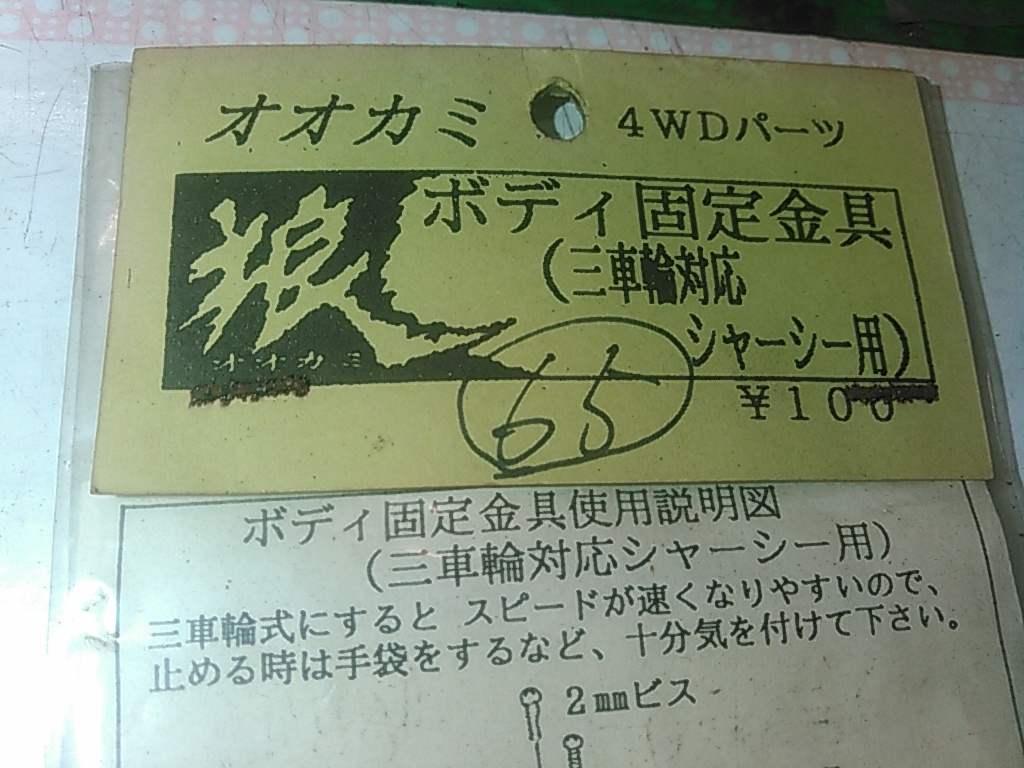 オオカミ 4WDパーツ
狼 ボディ固定金具
(三車輪対応
シャーシー用)
オオカミ
65
¥100
ボディ固定金具使用説明図
(三車輪対応シャーシー用)
三車輪式にすると スピードが速くなりやすいので、
止める時は手袋をするなど、十分気を付けて下さい。
2mmビス